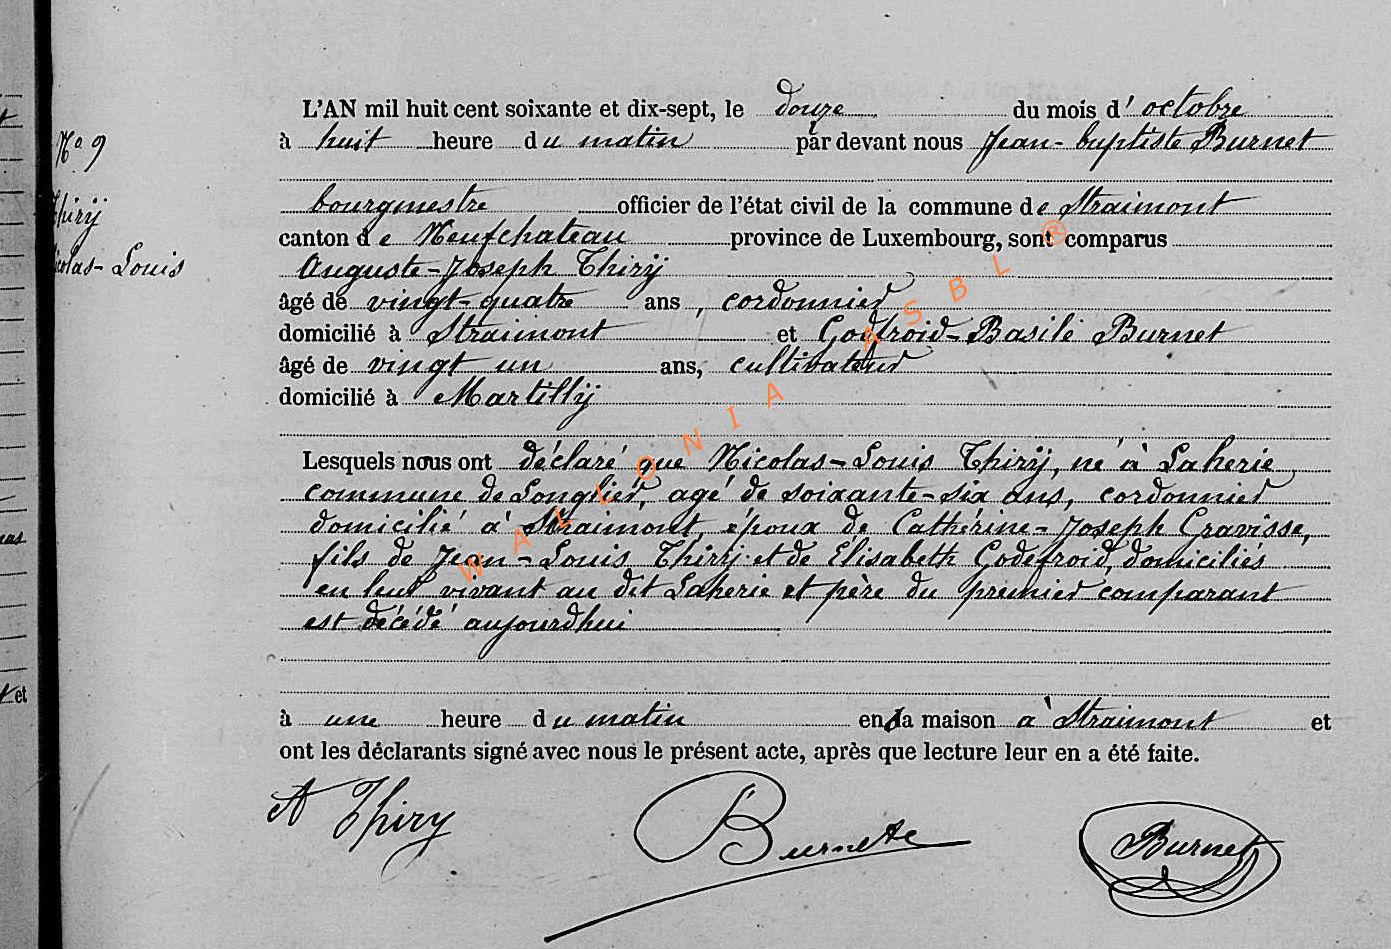 L'AN mil huit cent soixante et dix-sept, le douze du mois d'octobre
N° 9
à huit heure du matin par devant nous Jean-baptiste Burnet
Thirÿ
bourgmestre officier de l'état civil de la commune de Straimont
canton de Neufchateau province de Luxembourg, sont comparus
Nicolas-Louis
Auguste-Joseph Thirÿ
âgé de vingt-quatre ans, cordonnier
domicilié à Straimont et Godfroid-Basile Burnet
âgé de vingt un ans, cultivateur
domicilié à Martillÿ
Lesquels nous ont déclaré que Nicolas-Louis Thirÿ, né à Laherie
commune de Longlier, agé de soixante-six ans, cordonnier
domicilié à Straimont, époux de Cathérine-Joseph Gravisse,
fils de Jean-Louis Thirÿ et de Elisabeth Godefroid, domiciliés
en leur vivant au dit Laherie et père du premier comparant
est décédé aujourdhui
et
à une heure du matin en la maison à Straimont et
ont les déclarants signé avec nous le présent acte, après que lecture leur en a été faite.
A Thiry
Burnet
Burnet
WALLONIA ASBL ®